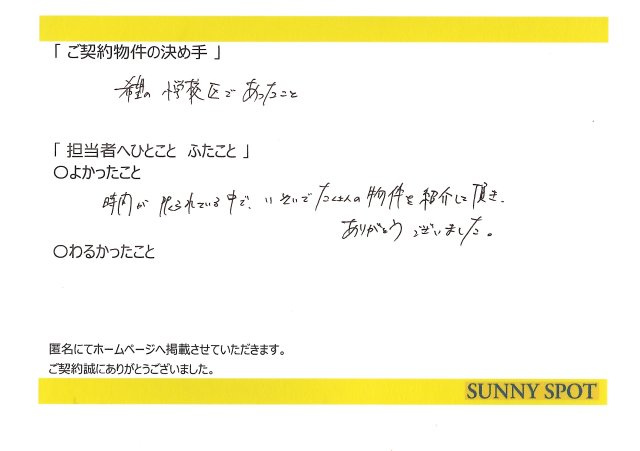 「 ご契約物件の決め手 」
希望の学校区であったこと
「 担当者へひとこと ふたこと 」
〇よかったこと
時間が限られている中で、いそいでたくさんの物件を紹介して頂き、
ありがとうございました。
〇わるかったこと
匿名にてホームページへ掲載させていただきます。
ご契約誠にありがとうございました。
SUNNY SPOT